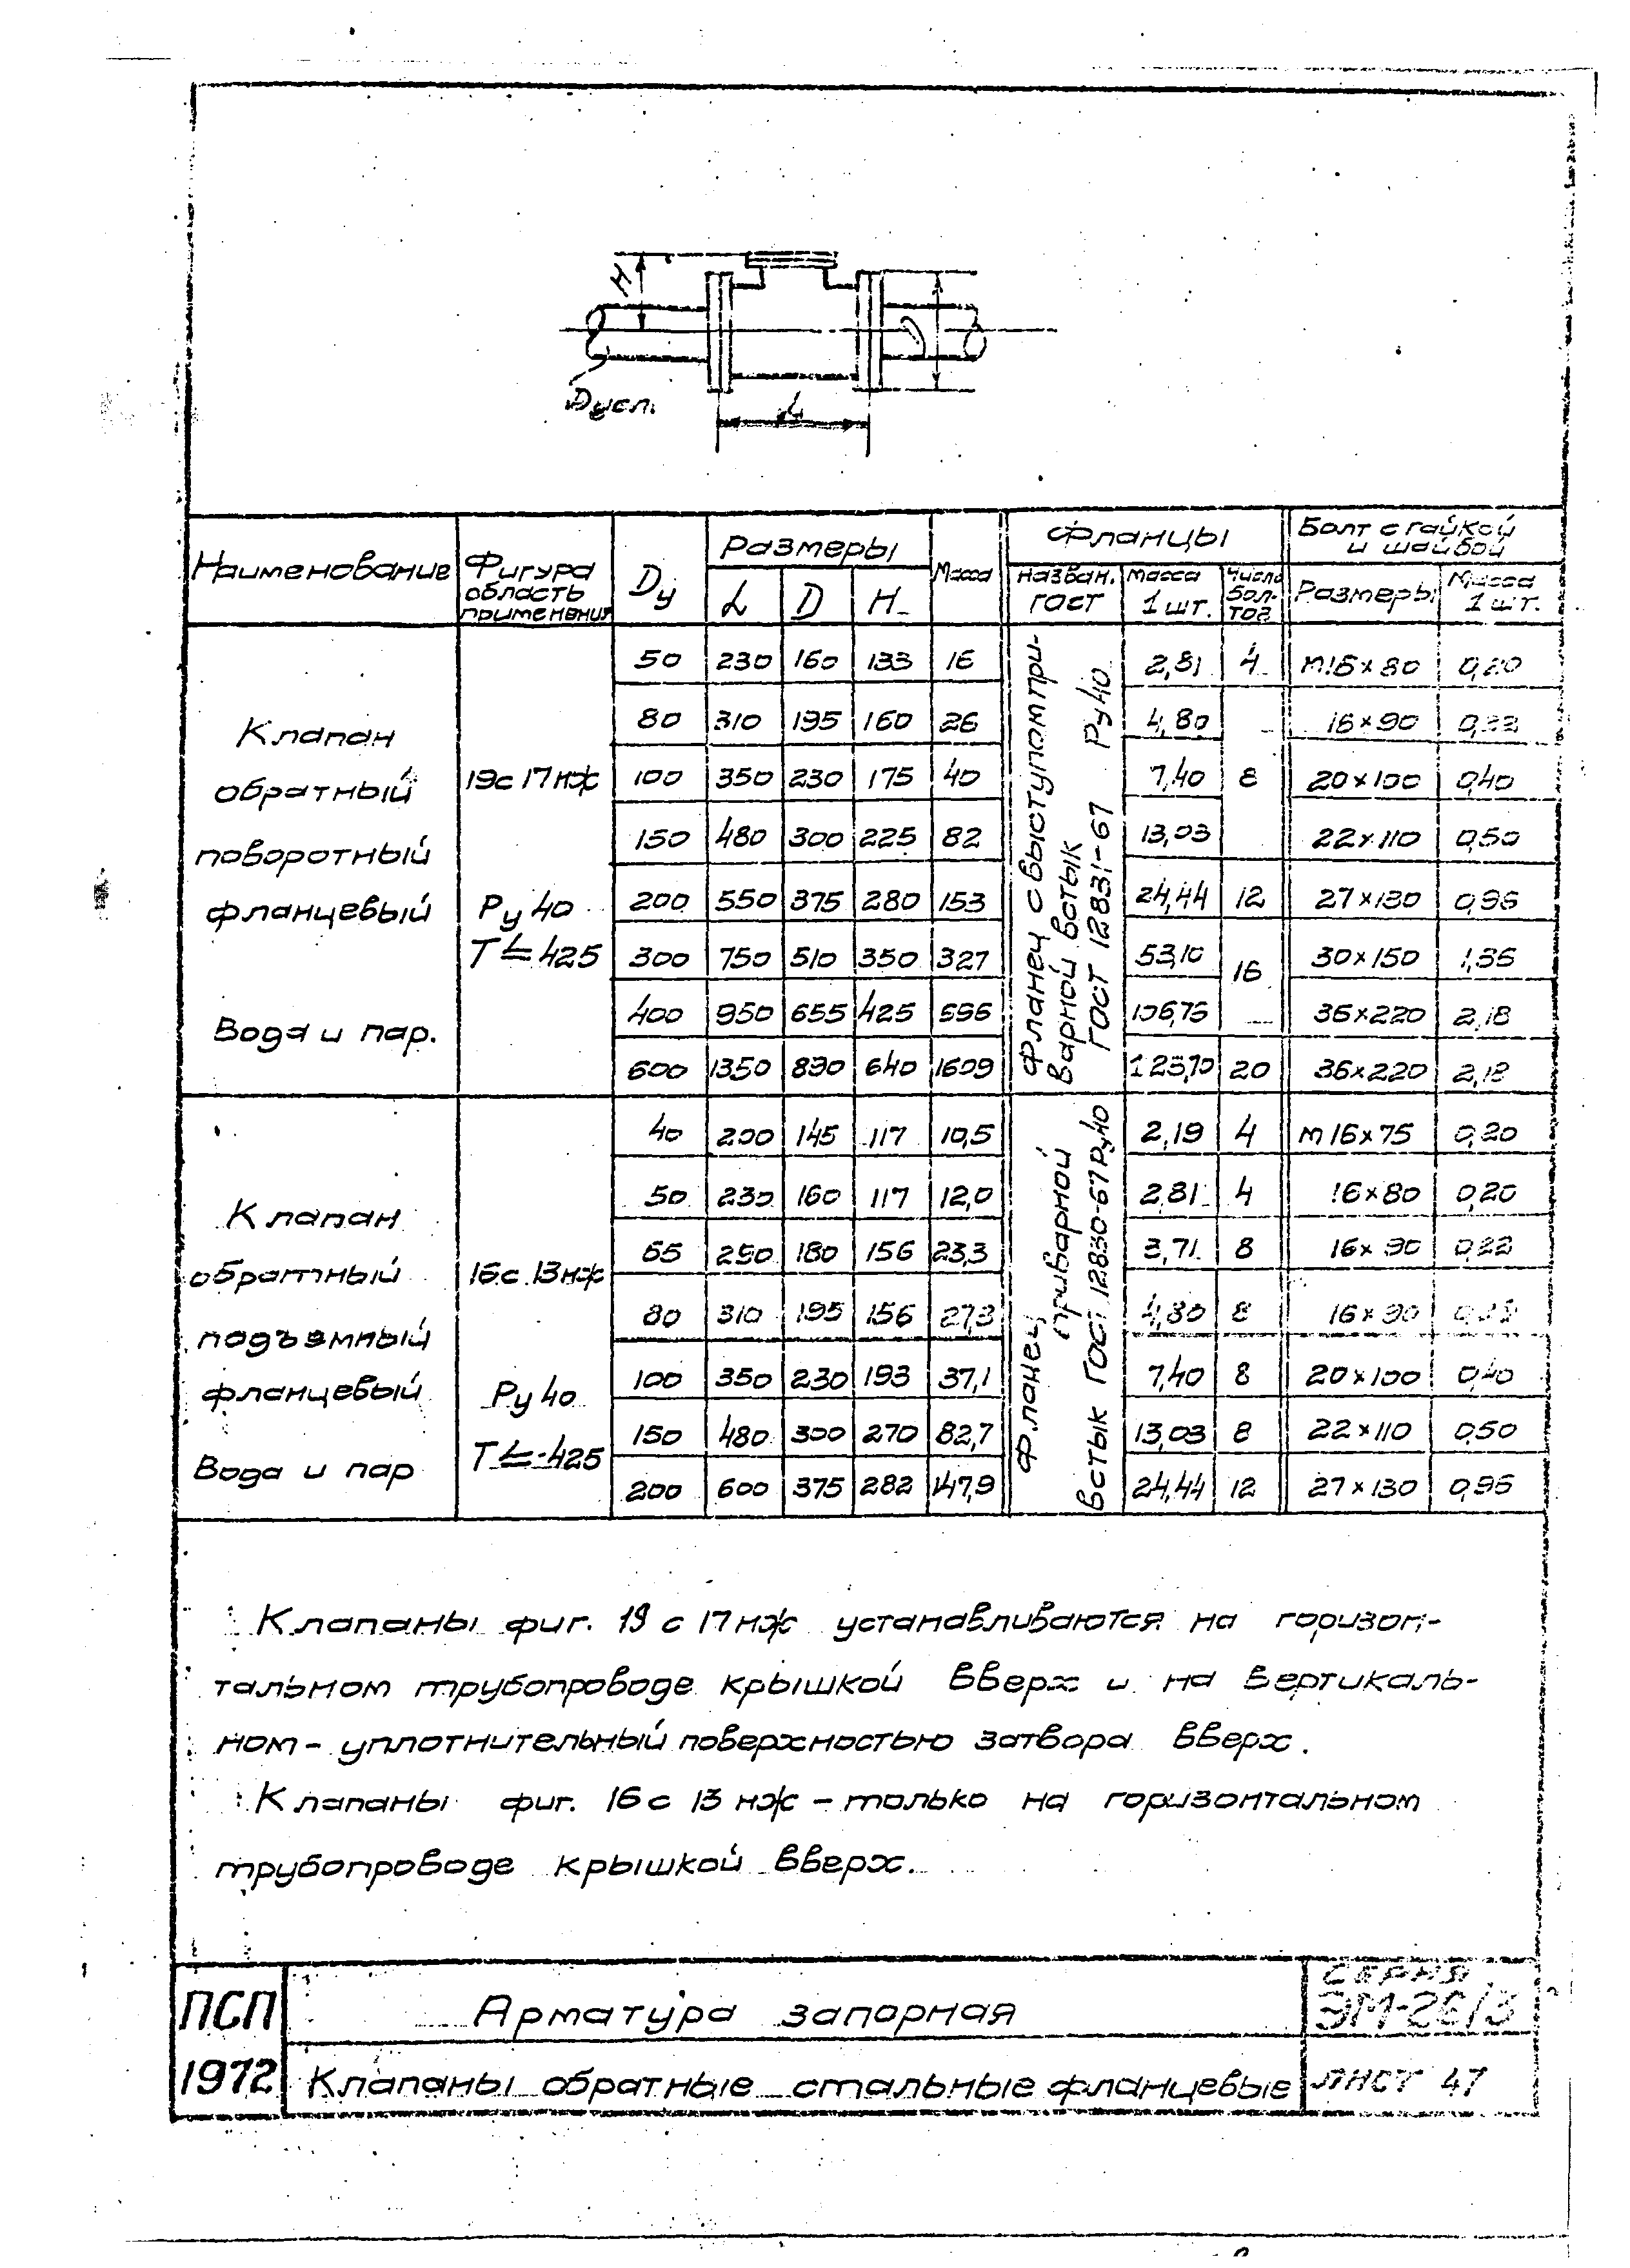 H
Dусл.
L
Наименование
Фигура область применения
Dу
Размеры
L
D
H
Масса
Фланцы
назван. гост
масса 1 шт.
Число болтов
Болт с гайкой и шайбой
Размеры
Масса 1 шт.
Клапан
обратный
поворотный
фланцевый
Вода и пар.
19с 17нж
Ру 40
Т ≤ 425
Фланец с выступом при-
варной встык
ГОСТ 12831-67 Ру40
50 230 160 133 16 2,81 4 М16×80 0,20
80 310 195 160 26 4,80 16×90
100 350 230 175 40 7,40 8 20×100 0,40
150 480 300 225 82 13,03 22×110 0,50
200 550 375 280 153 24,44 12 27×130 0,96
300 750 510 350 327 53,10 16 30×150
400 950 655 425 36×220 2,18
600 1350 890 640 1609 20 36×220 2,18
Клапан
обратный
подъемный
фланцевый
Вода и пар
16с 13нж
Ру 40
Т ≤ 425
Фланец приварной
встык ГОСТ 12830-67 Ру40
40 200 145 117 10,5 2,19 4 М16×75 0,20
50 230 160 117 12,0 2,81 4 16×80 0,20
65 290 180 156 23,3 3,71 8 16×90 0,22
80 310 195 156 27,3 4,80 8 16×90
100 350 230 193 37,1 7,40 8 20×100 0,40
150 480 300 270 82,7 13,03 8 22×110 0,50
200 600 375 282 147,9 24,44 12 27×130 0,96
Клапаны фиг. 19 с 17 нж устанавливаются на горизон-
тальном трубопроводе крышкой вверх и на вертикаль-
ном - уплотнительный поверхностью затвора вверх.
Клапаны фиг. 16с 13 нж - только на горизонтальном
трубопроводе крышкой вверх.
ПСП
1972
Арматура запорная
Клапаны обратные стальные фланцевые
СЕРИЯ
ЭМ-26/3
ЛИСТ 47